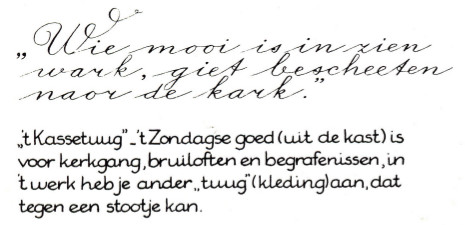 „Wie mooi is in zien
wark, giet bescheeten
naor de kark.”
„'t Kassetuug”_'t Zondagse goed (uit de kast) is
voor kerkgang, bruiloften en begrafenissen, in
't werk heb je ander „tuug” (kleding) aan, dat
tegen een stootje kan.